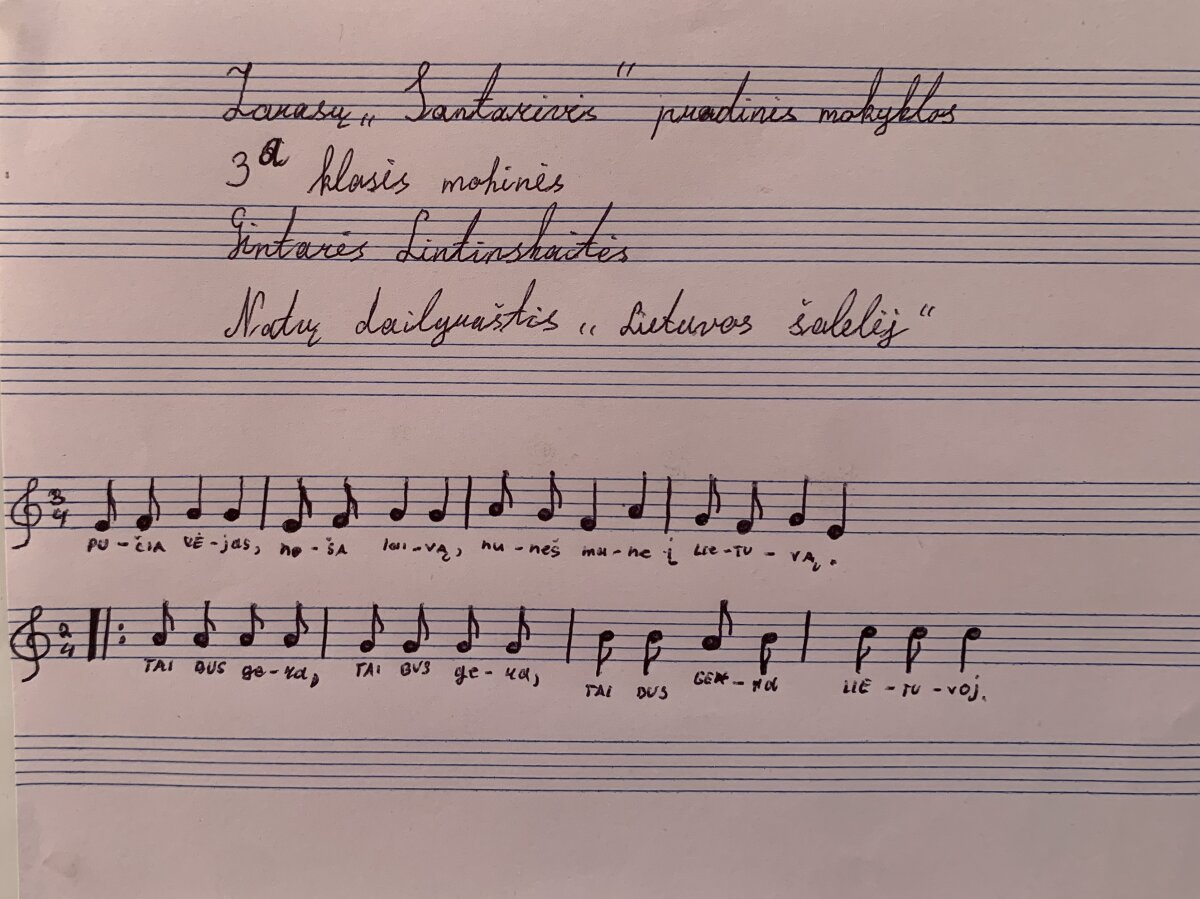 Zarasų „Santarivės“ pradinis mokyklos
3a klasės mokinės
Gintarės Lintinskaitės
Natų dailyraštis „Lietuvos šalelėj“
3 4
PU - ČIA VĖ - jas, ne - ŠA lai - vą, nu - neš ma - ne į LIE - TU - VĄ.
2 4
TAI BUS ge - ra, TAI BUS ge - ra, TAI BUS GER - ra LIE - TU - voj.